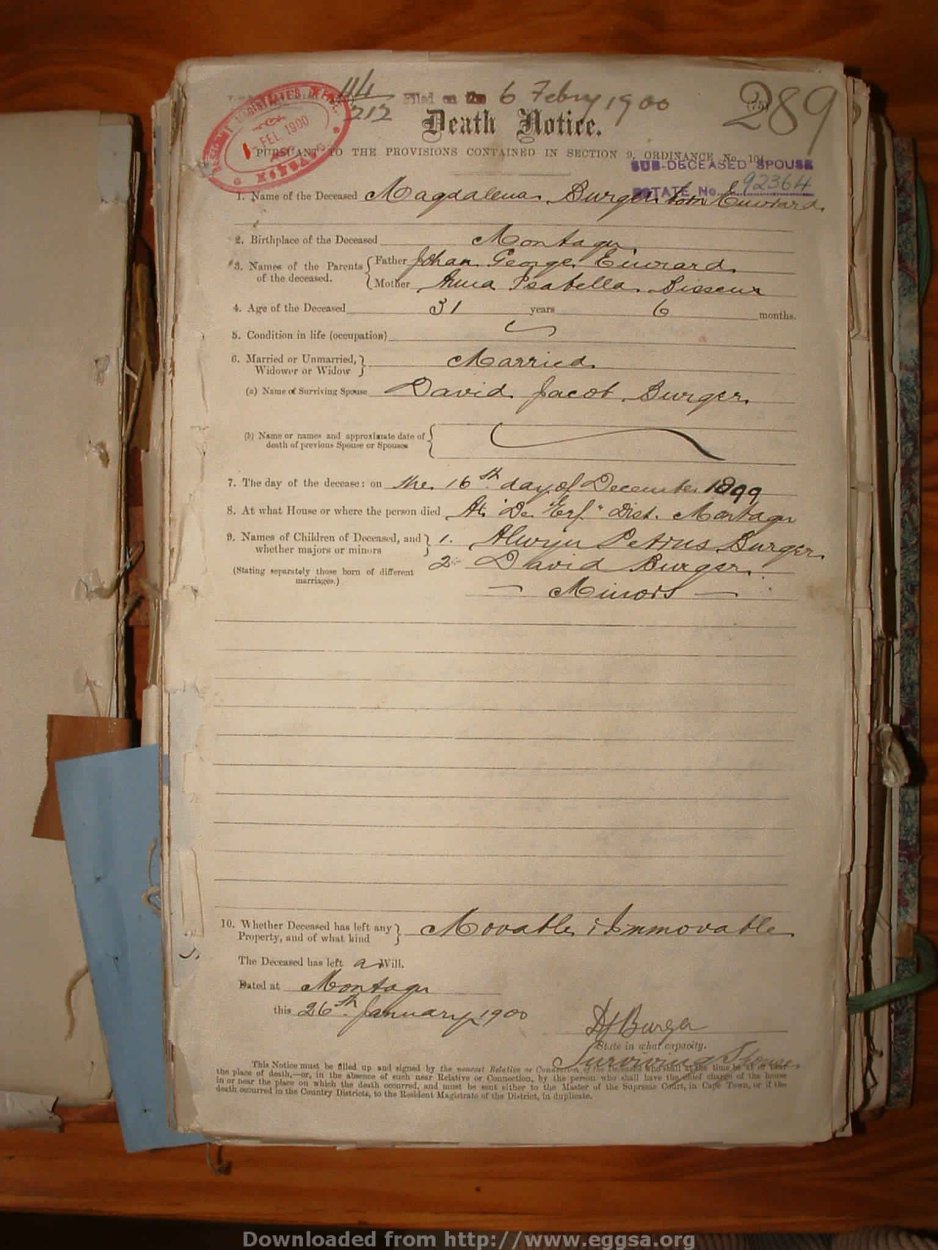 114
212
Filed on the 6 Febry 1900
289
Death Notice.
FEB. 1900
PURSUANT TO THE PROVISIONS CONTAINED IN SECTION 9, ORDINANCE No. 104
SUB-DECEASED SPOUSE
ESTATE No. 92364
1. Name of the Deceased Magdalena Burger born Euvrard
2. Birthplace of the Deceased Montagu
*3. Names of the Parents of the deceased. { Father Johan George Euvrard
Mother Anna Isabella
4. Age of the Deceased 31 years 6 months.
5. Condition in life (occupation)
6. Married or Unmarried, Widower or Widow } Married
(a) Name of Surviving Spouse David Jacob Burger
(b) Name or names and approximate date of death of previous Spouse or Spouses {
7. The day of the decease: on the 16th day of December 1899
8. At what House or where the person died At "De Erf" Dist. Montagu
9. Names of Children of Deceased, and whether majors or minors } 1. Alwyn Petrus Burger
(Stating separately those born of different marriages.) 2. David Burger
— Minors —
10. Whether Deceased has left any Property, and of what kind } Movable & Immovable
The Deceased has left a Will.
Dated at Montagu
this 26th January 1900
DJ Burger
State in what capacity.
Surviving Spouse
This Notice must be filled up and signed by the nearest Relative or Connection of the deceased who shall at the time be at or near
the place of death,—or, in the absence of such near Relative or Connection, by the person who shall have the chief charge of the house
in or near the place on which the death occurred, and must be sent either to the Master of the Supreme Court, in Cape Town, or if the
death occurred in the Country Districts, to the Resident Magistrate of the District, in duplicate.
Downloaded from http://www.eggsa.org